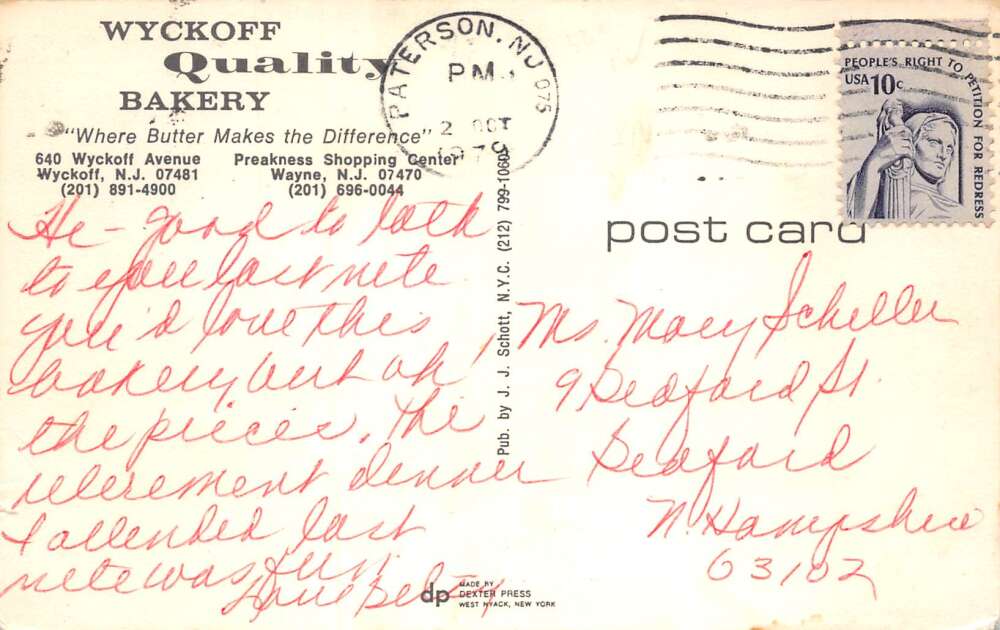 WYCKOFF
Quality
BAKERY
"Where Butter Makes the Difference"
640 Wyckoff Avenue
Wyckoff, N.J. 07481
(201) 891-4900
Preakness Shopping Center
Wayne, N.J. 07470
(201) 696-0044
Hi - good to talk
to you last nite
you'd love this
bakery but oh
the prices. The
retirement dinner
I attended last
nite was fun
Love Betty
Pub. by J. J. Schott, N.Y.C. (212) 799-1060
dp
MADE BY
DEXTER PRESS
WEST NYACK, NEW YORK
PATERSON, NJ 075
PM
2 OCT
PEOPLE'S RIGHT TO PETITION FOR REDRESS
USA 10c
post card
Ms. Mary Scheller
9 Bedford St.
Bedford
N. Hampshire
03102